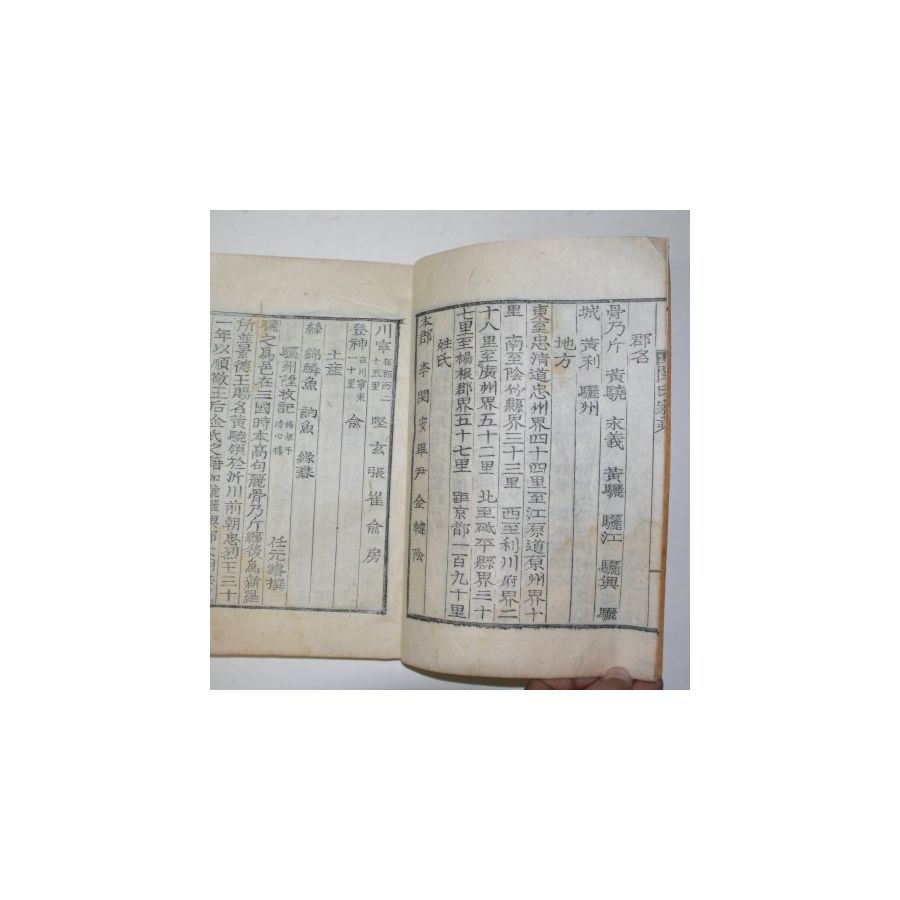 郡名
骨乃斤 黃驍 永義 黃驪 驪江 驪興 驪
城 黃利 驪州
地方
東至忠清道忠州界四十四里至江原道原州界十
里 南至陰竹縣界三十三里 西至利川府界二
十八里至廣州界五十二里 北至砥平縣界三十
七里至楊根郡界五十七里 距京都一百九十里
姓氏
本郡 李 閔 安 畢 尹 金 韓 陰
川寧 在郡西二十五里 堅 玄 張 崔 兪 房
登神 在川寧東一十里 兪
土産
絲 錦鱗魚 訥魚 綠礬
驪州陞牧記 清心樓 任元濬撰
驪之爲邑在三國時本高句麗骨乃斤縣後爲新羅
所並景德王賜名黃驍領於沂川前朝忠烈王三十
一年以順敬王后金氏之籍